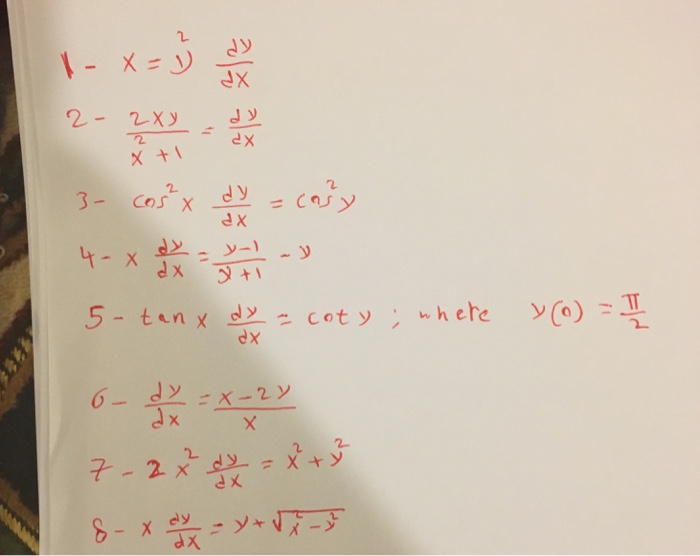 1- x = y² dy/dx
2- 2xy/(x²+1) = dy/dx
3- cos²x dy/dx = cos²y
4- x dy/dx = (y-1)/(y+1) - y
5- tan x dy/dx = cot y ; where y(0) = π/2
6- dy/dx = (x-2y)/x
7- 2x² dy/dx = x²+y²
8- x dy/dx = y+√(x²-y²)